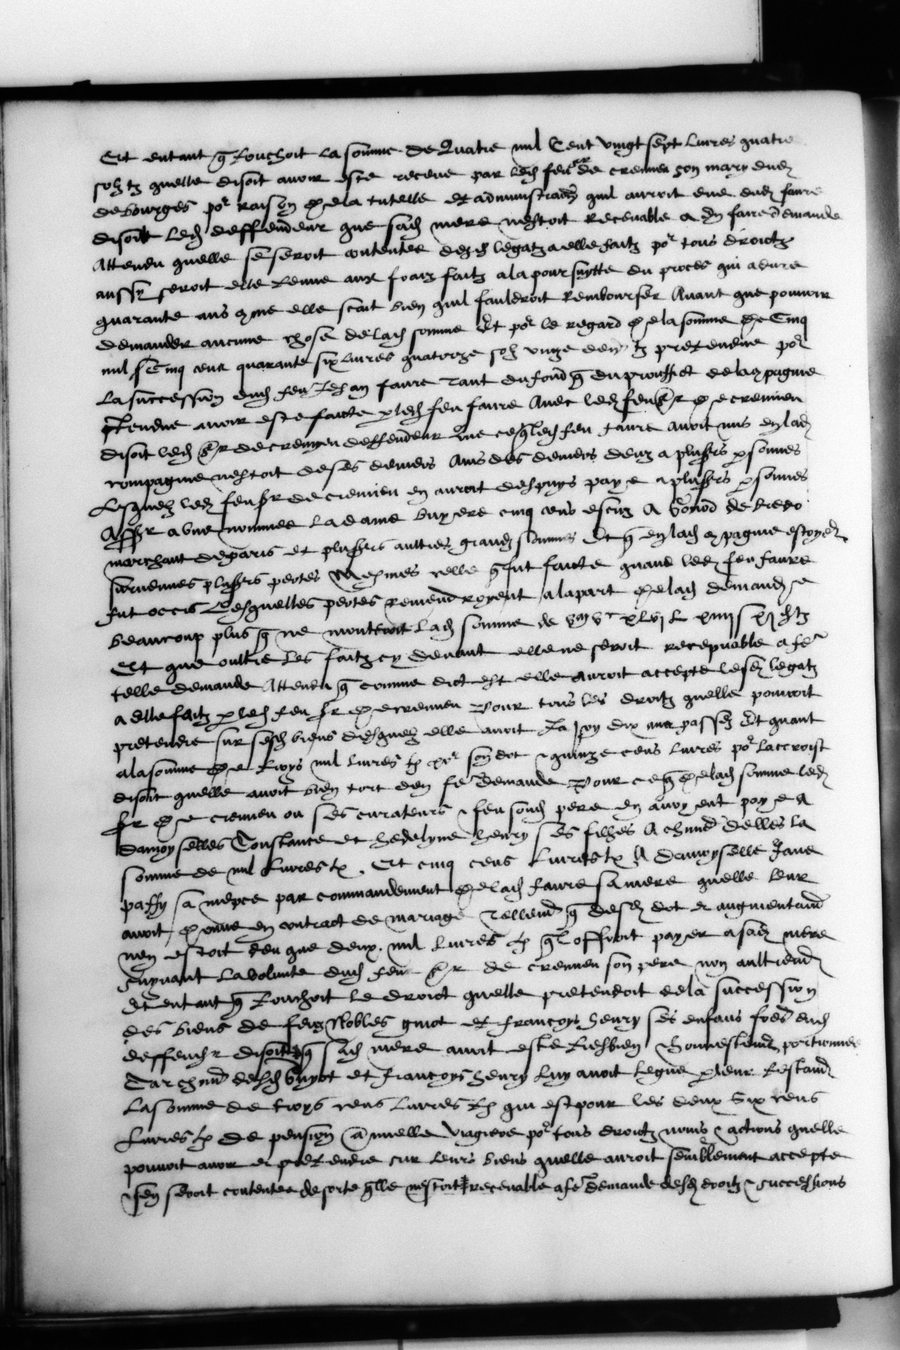 Et entant q touchoit la somme de Quatre mil Cent vingt sept livres quatre
solz tz quelle disoit avoir este receue par led feu sr de cremieu son mary dud
de bourges por raison de la tutelle et administraon quil auroit eue dud faure
disoit led deffendeur que sad mere nestoit recevable a en faire demande
Attendu quelle se seroit contentee desd legatz a elle faitz por tous droictz
aussy seroit elle tenue aux fraiz faitz a la poursuytte du proces qui a dure
quarante ans q me elle scait bien quil fauldroit rembourser Avant que pouvoir
demander aucune chose de lad somme Et por le regard de la somme de Cinq
mil Cinq cens quarante six livres quatorze solz unze den tz pretendue por
la succession dud feu Jehan faure Tant du fond q du prouffict de la compagnie
ptendue avoir este faicte p led feu faure Avec led feu sr de cremieu
disoit led sr de cremieu deffendeur que ce q led feu faure avoit mis en lad
compagnie nestoit de ses deniers Ains des deniers deuz a plusrs psonnes
Lesquelz led feu sr de cremieu en auroit despuys paye a plusrs psonnes
Assr a une nommee la dame buyere cinq cens escuz A
marchant de paris et plusrs aultres grandz sommes Et q en lad compagnie estoyent
survenues plusrs pertes Mesmes celle q fut faicte quand led feu faure
fut occis Lesquelles pertes reviendroyent a la part de lad demandse
beaucoup plus q ne monteroit lad somme de vm vc xlvj L xiiij s xj d tz
Et que oultre les faitz cy devant elle ne seroit recepvable a fe
telle demande Attendu q comme dict est elle auroit accepte lesd legatz
a elle faitz p led feu sr de cremieu Pour tous les droitz quelle pouvoit
pretendre sur sesd biens desquelz elle avoit Ja joy dix ans passez Et quant
a la somme de troys mil livres tz por son dot & quinze cens livres por laccroist
disoit quelle avoit bien tort den fe demande Pour ce q de lad somme led
sr de cremieu ou ses curateurs & feu sond pere en avoyent paye a
damoyselles Constance et hedelyne henry ses filhes A chune delles la
somme de mil livres tz. Et cinq cens livres tz A damoyselle Jane
passy sa niepce par commandement de lad faure sa mere quelle leur
avoit donne en contract de mariage Tellemt q desd dot et augmentaon
nen estoit deu que deux mil livres tz ql offroit payer a sad mere
suyvant la volunte dud feu sr de cremieu son pere non aultremt
Et entant q touchoit le droict quelle pretendoit de la succession
des biens de feuz Nobles guiot et francoys henry ses enfans fres dud
deffendr disoit q sad mere avoit este tresbien & honnestemt portionnee
Car chun desd Guyot et francoys henry luy avoit legue p leur testamt
La somme de troys cens livres tz qui est pour les deux Six cens
livres tz de pension annuelle viagiere por tous droictz noms & actions quelle
pouvoit avoir et pretendre sur leurs biens quelle auroit semblement accepte
& sen seroit contentee de sorte qlle nestoit recevable a fe demande desd droitz & successions